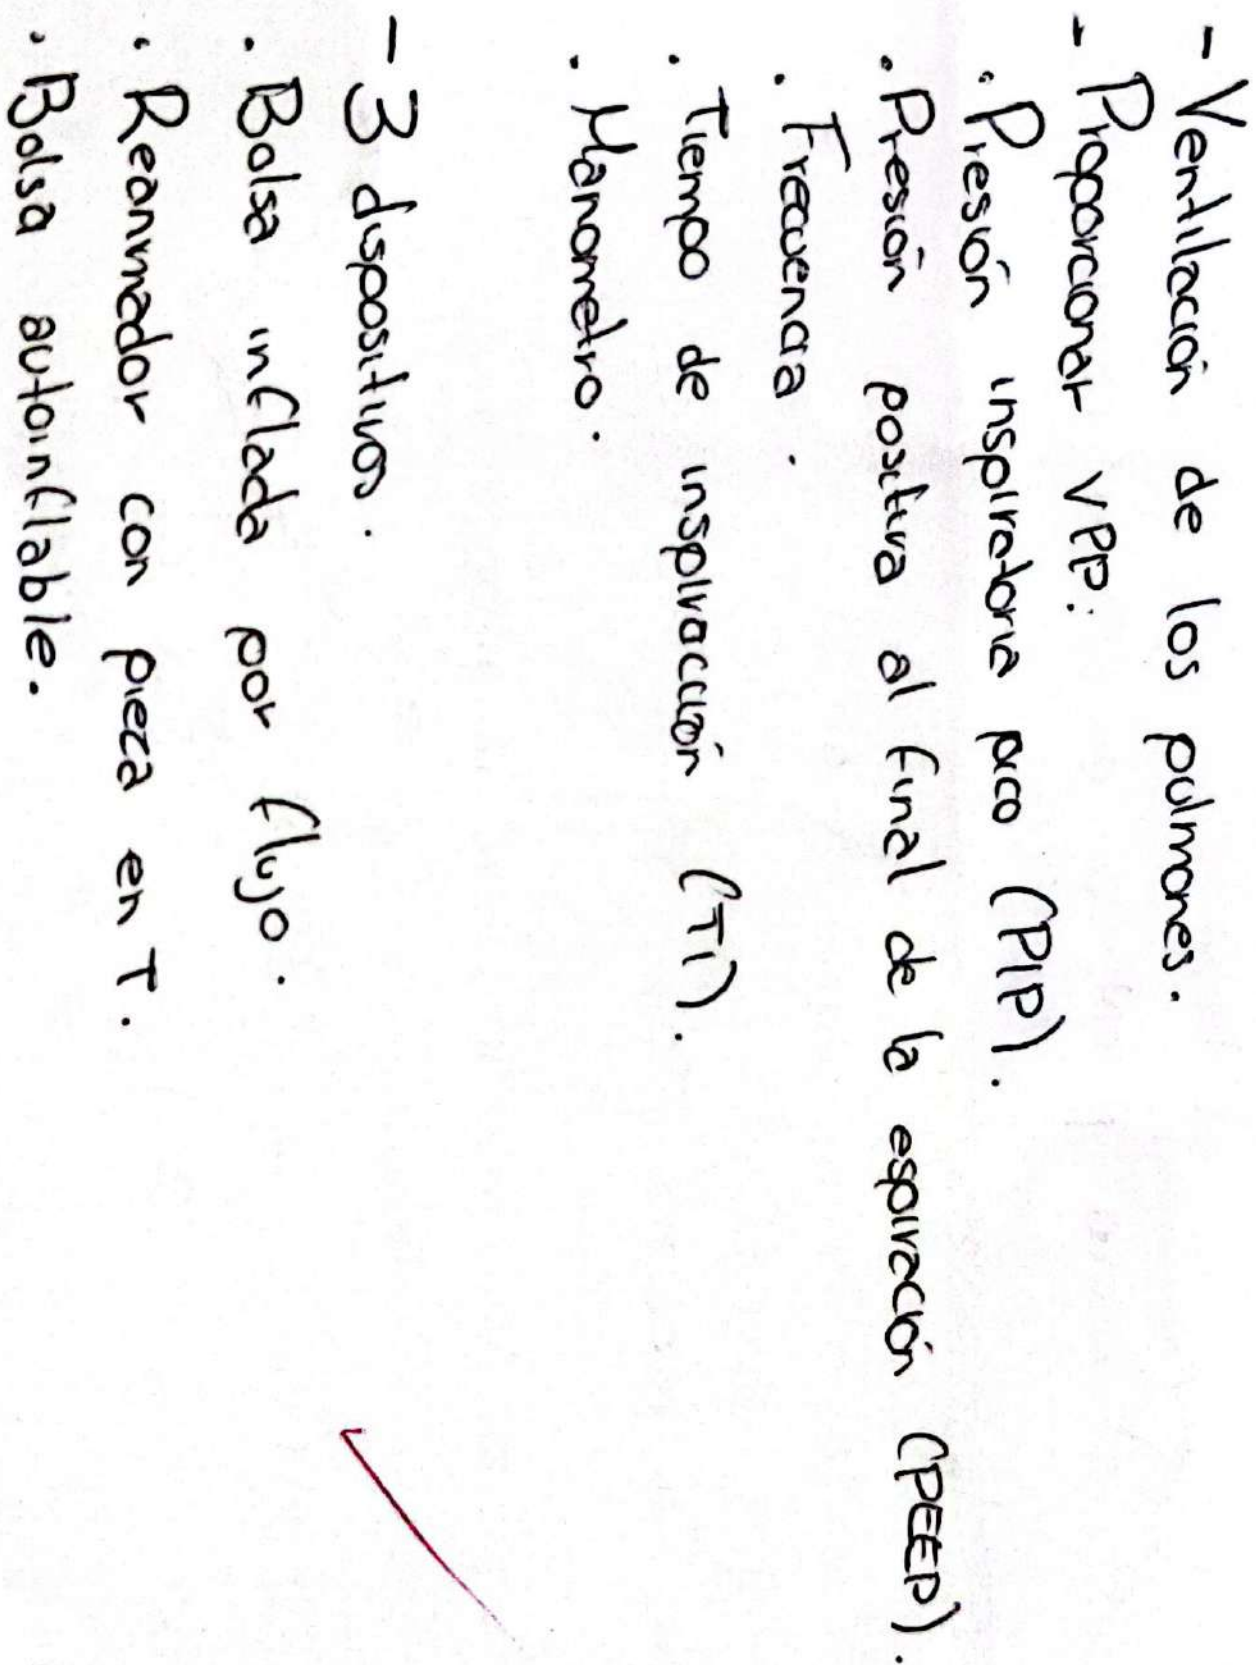 - Ventilación de los pulmones.
- Proporcionar VPP:
. Presión inspiratoria pico (PIP).
. Presión positiva al final de la espiración (PEEP).
. Frecuencia.
. Tiempo de inspiracción (Ti).
. Manometro.
- 3 dispositivos.
. Bolsa inflada por flujo.
. Reanimador con pieza en T.
. Bolsa autoinflable.